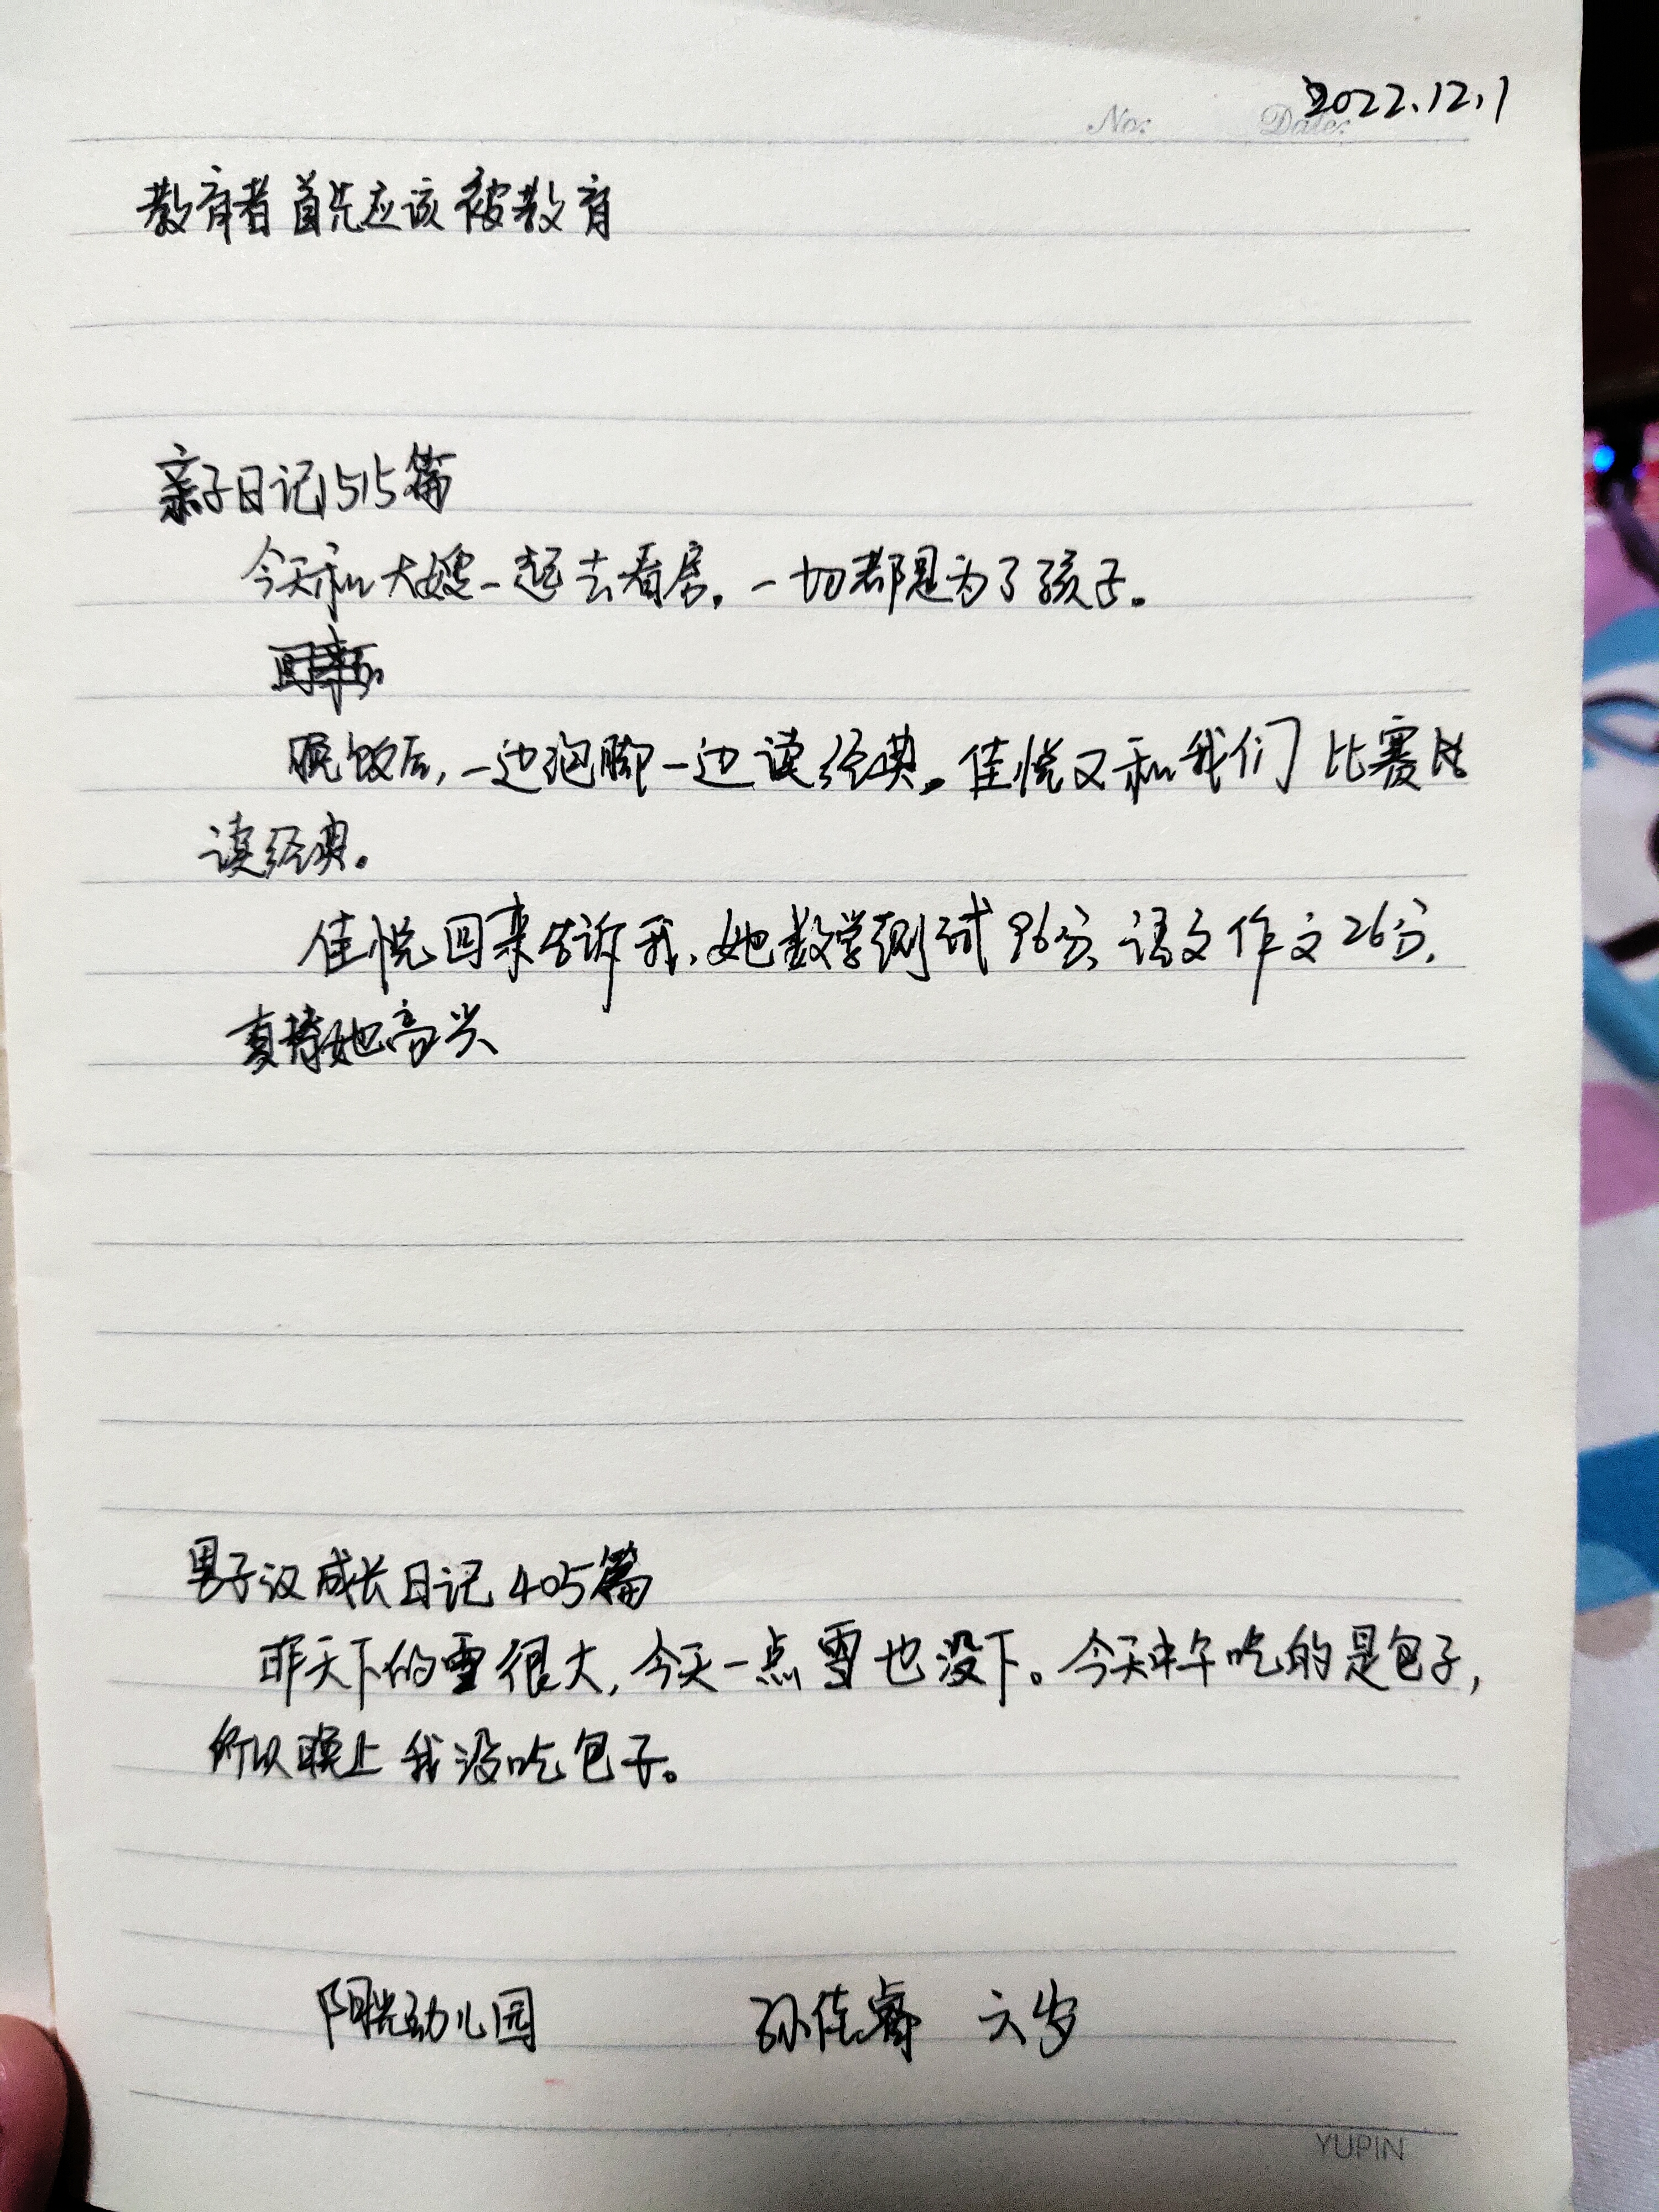 2022.12.1
No: Date:
教育者首先应该被教育
亲子日记1515篇
今天和大嫂一起去看房，一切都是为了孩子。
晚饭后，一边泡脚一边读经典。佳悦又和我们比赛
读经典。
佳悦回来告诉我，她数学测试96分，语文作文26分，
真替她高兴
男子汉成长日记405篇
昨天下的雪很大，今天一点雪也没下。今天中午吃的是包子，
所以晚上我没吃包子。
阳光幼儿园 孙佳睿 六岁
YUPIN